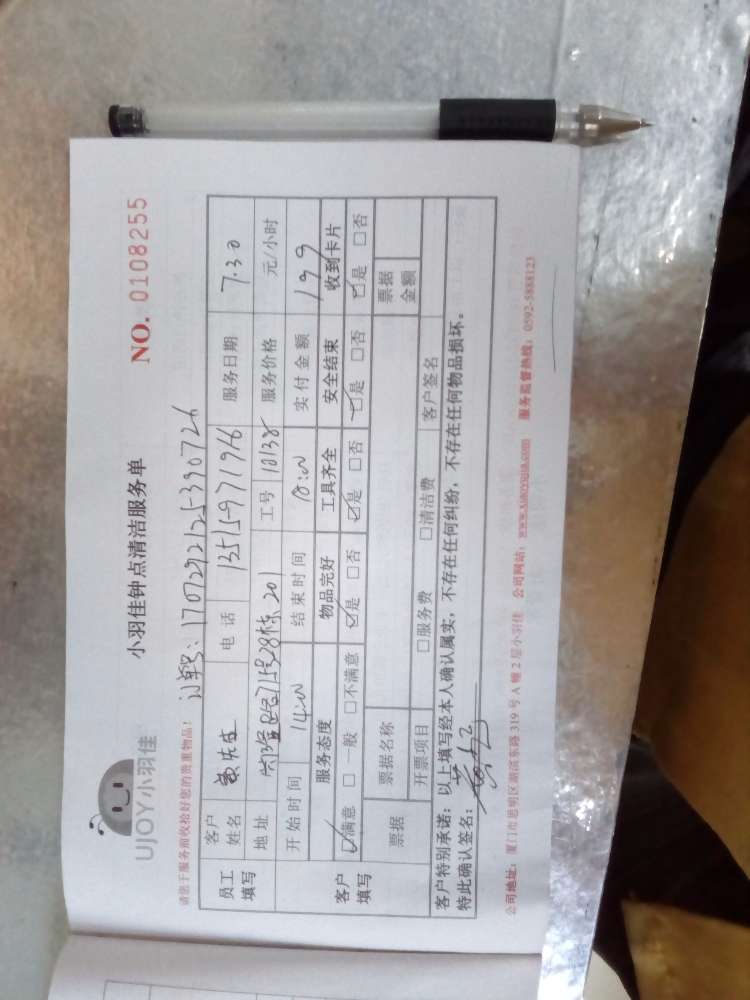 UJOY小羽佳
小羽佳钟点清洁服务单
NO. 0108255
请您于服务前收拾好您的贵重物品!
订单号: 1707292125390726
员工填写 客户姓名 黄先生 电话 13515971916 服务日期 7.30
地址 28栋 201 工号 服务价格 元/小时
开始时间 14:00 结束时间 18:00 实付金额 199
客户填写 服务态度 物品完好 工具齐全 安全结束 收到卡片
☑满意 □一般 □不满意 ☑是 □否 ☑是 □否 ☑是 □否 ☑是 □否
票据 票据名称 票据金额
开票项目 □服务费 □清洁费 客户签名
客户特别承诺:以上填写经本人确认属实,不存在任何纠纷,不存在任何物品损坏。
特此确认签名:
公司地址:厦门市思明区湖滨东路 319 号 A 幢 2 层小羽佳 公司网站:www.xiaoyujia.com 服务监督热线:0592-5888123